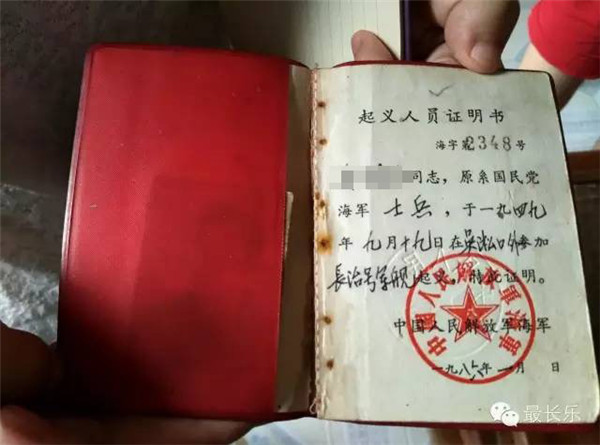 起义人员证明书
海字第2348号
同志，原系国民党
海军 士兵，于一九四九
年九月十九日在吴淞口外参加
長治号军舰起义，特此证明。
中国人民解放军海军
一九八六年一月 日
最长乐